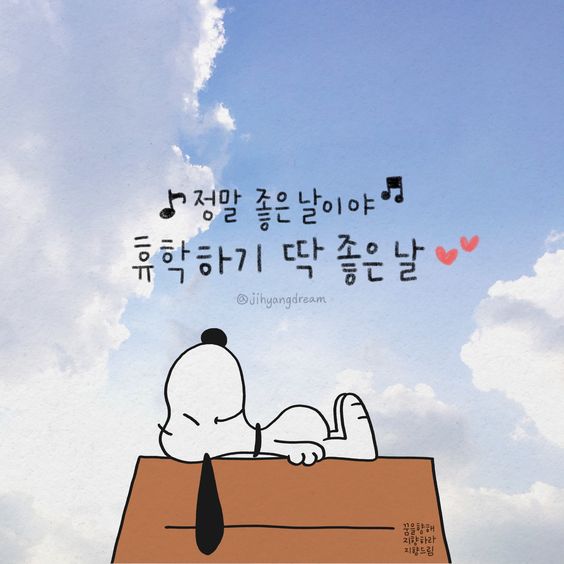 ♪ 정말 좋은날이야 ♫
휴학하기 딱 좋은날
@jihyangdream
꿈을향해
지향하라
지향드림